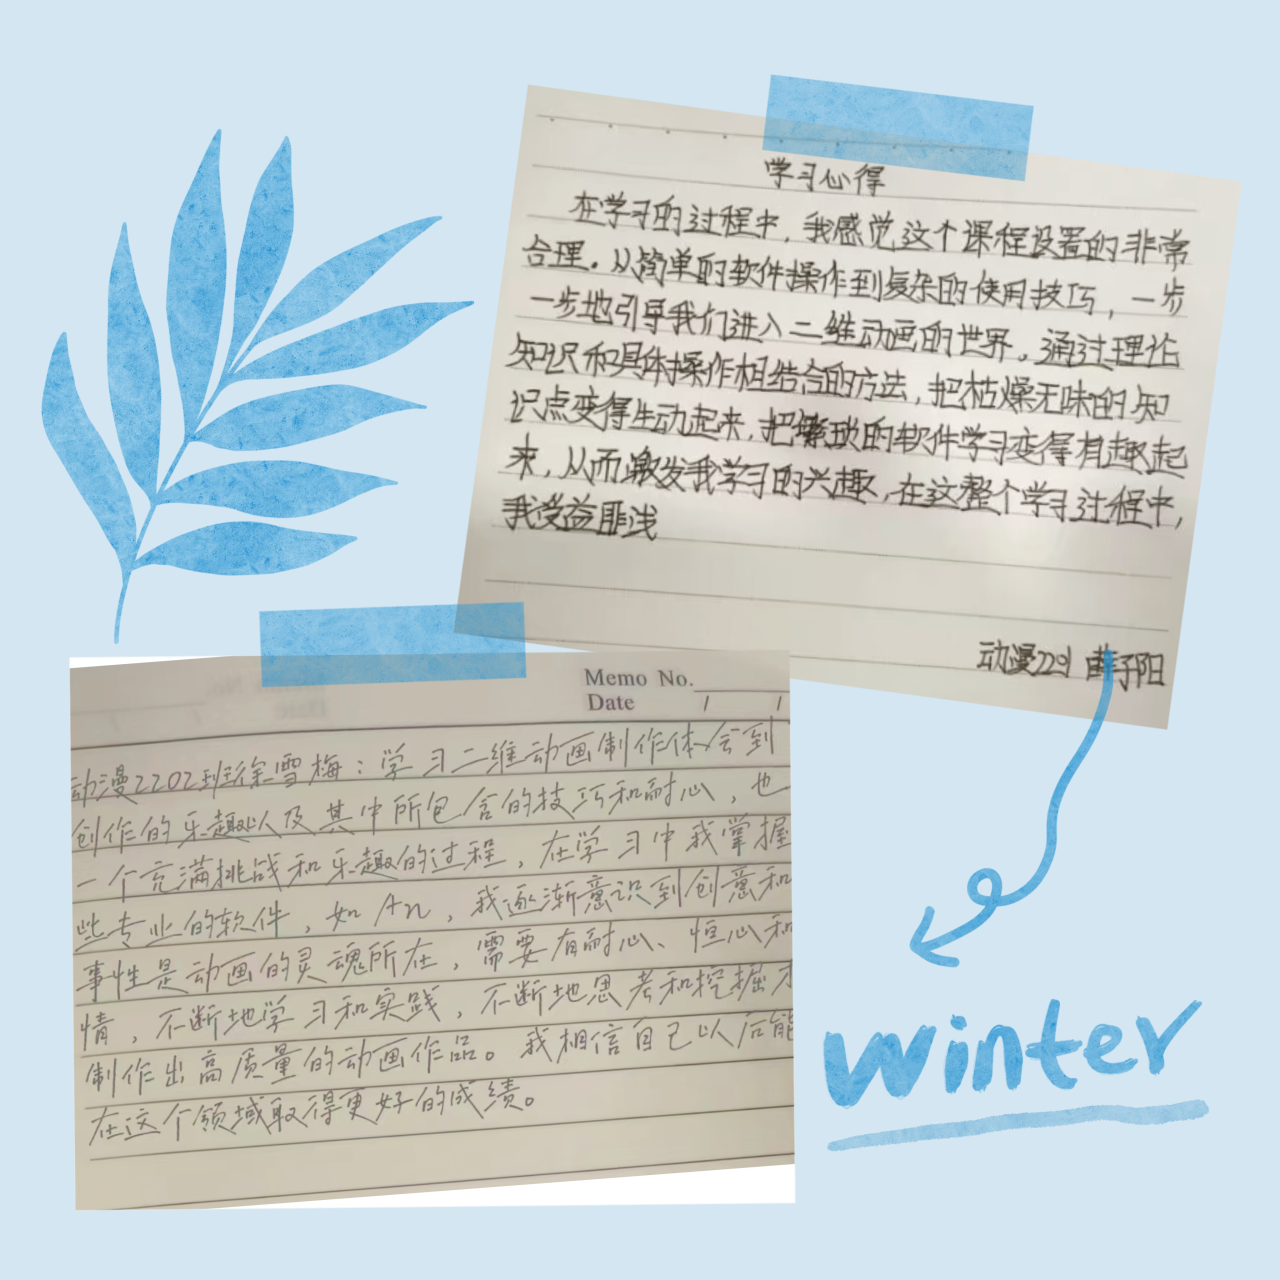 学习心得
在学习的过程中，我感觉这个课程设置的非常
合理。从简单的软件操作到复杂的使用技巧，一步
一步地引导我们进入二维动画的世界。通过理论
知识和具体操作相结合的方法，把枯燥无味的知
识点变得生动起来，把繁琐的软件学习变得有趣起
来，从而激发我学习的兴趣，在这整个学习过程中，
我受益匪浅
动漫2201 薛子阳
Memo No.
Date / /
动漫2202班徐雪梅：学习二维动画制作体会到
创作的乐趣以及其中所包含的技巧和耐心，也
一个充满挑战和乐趣的过程，在学习中我掌握
些专业的软件，如An，我逐渐意识到创意和
事性是动画的灵魂所在，需要有耐心、恒心和
情，不断地学习和实践，不断地思考和挖掘才
制作出高质量的动画作品。我相信自己以后能
在这个领域取得更好的成绩。
winter